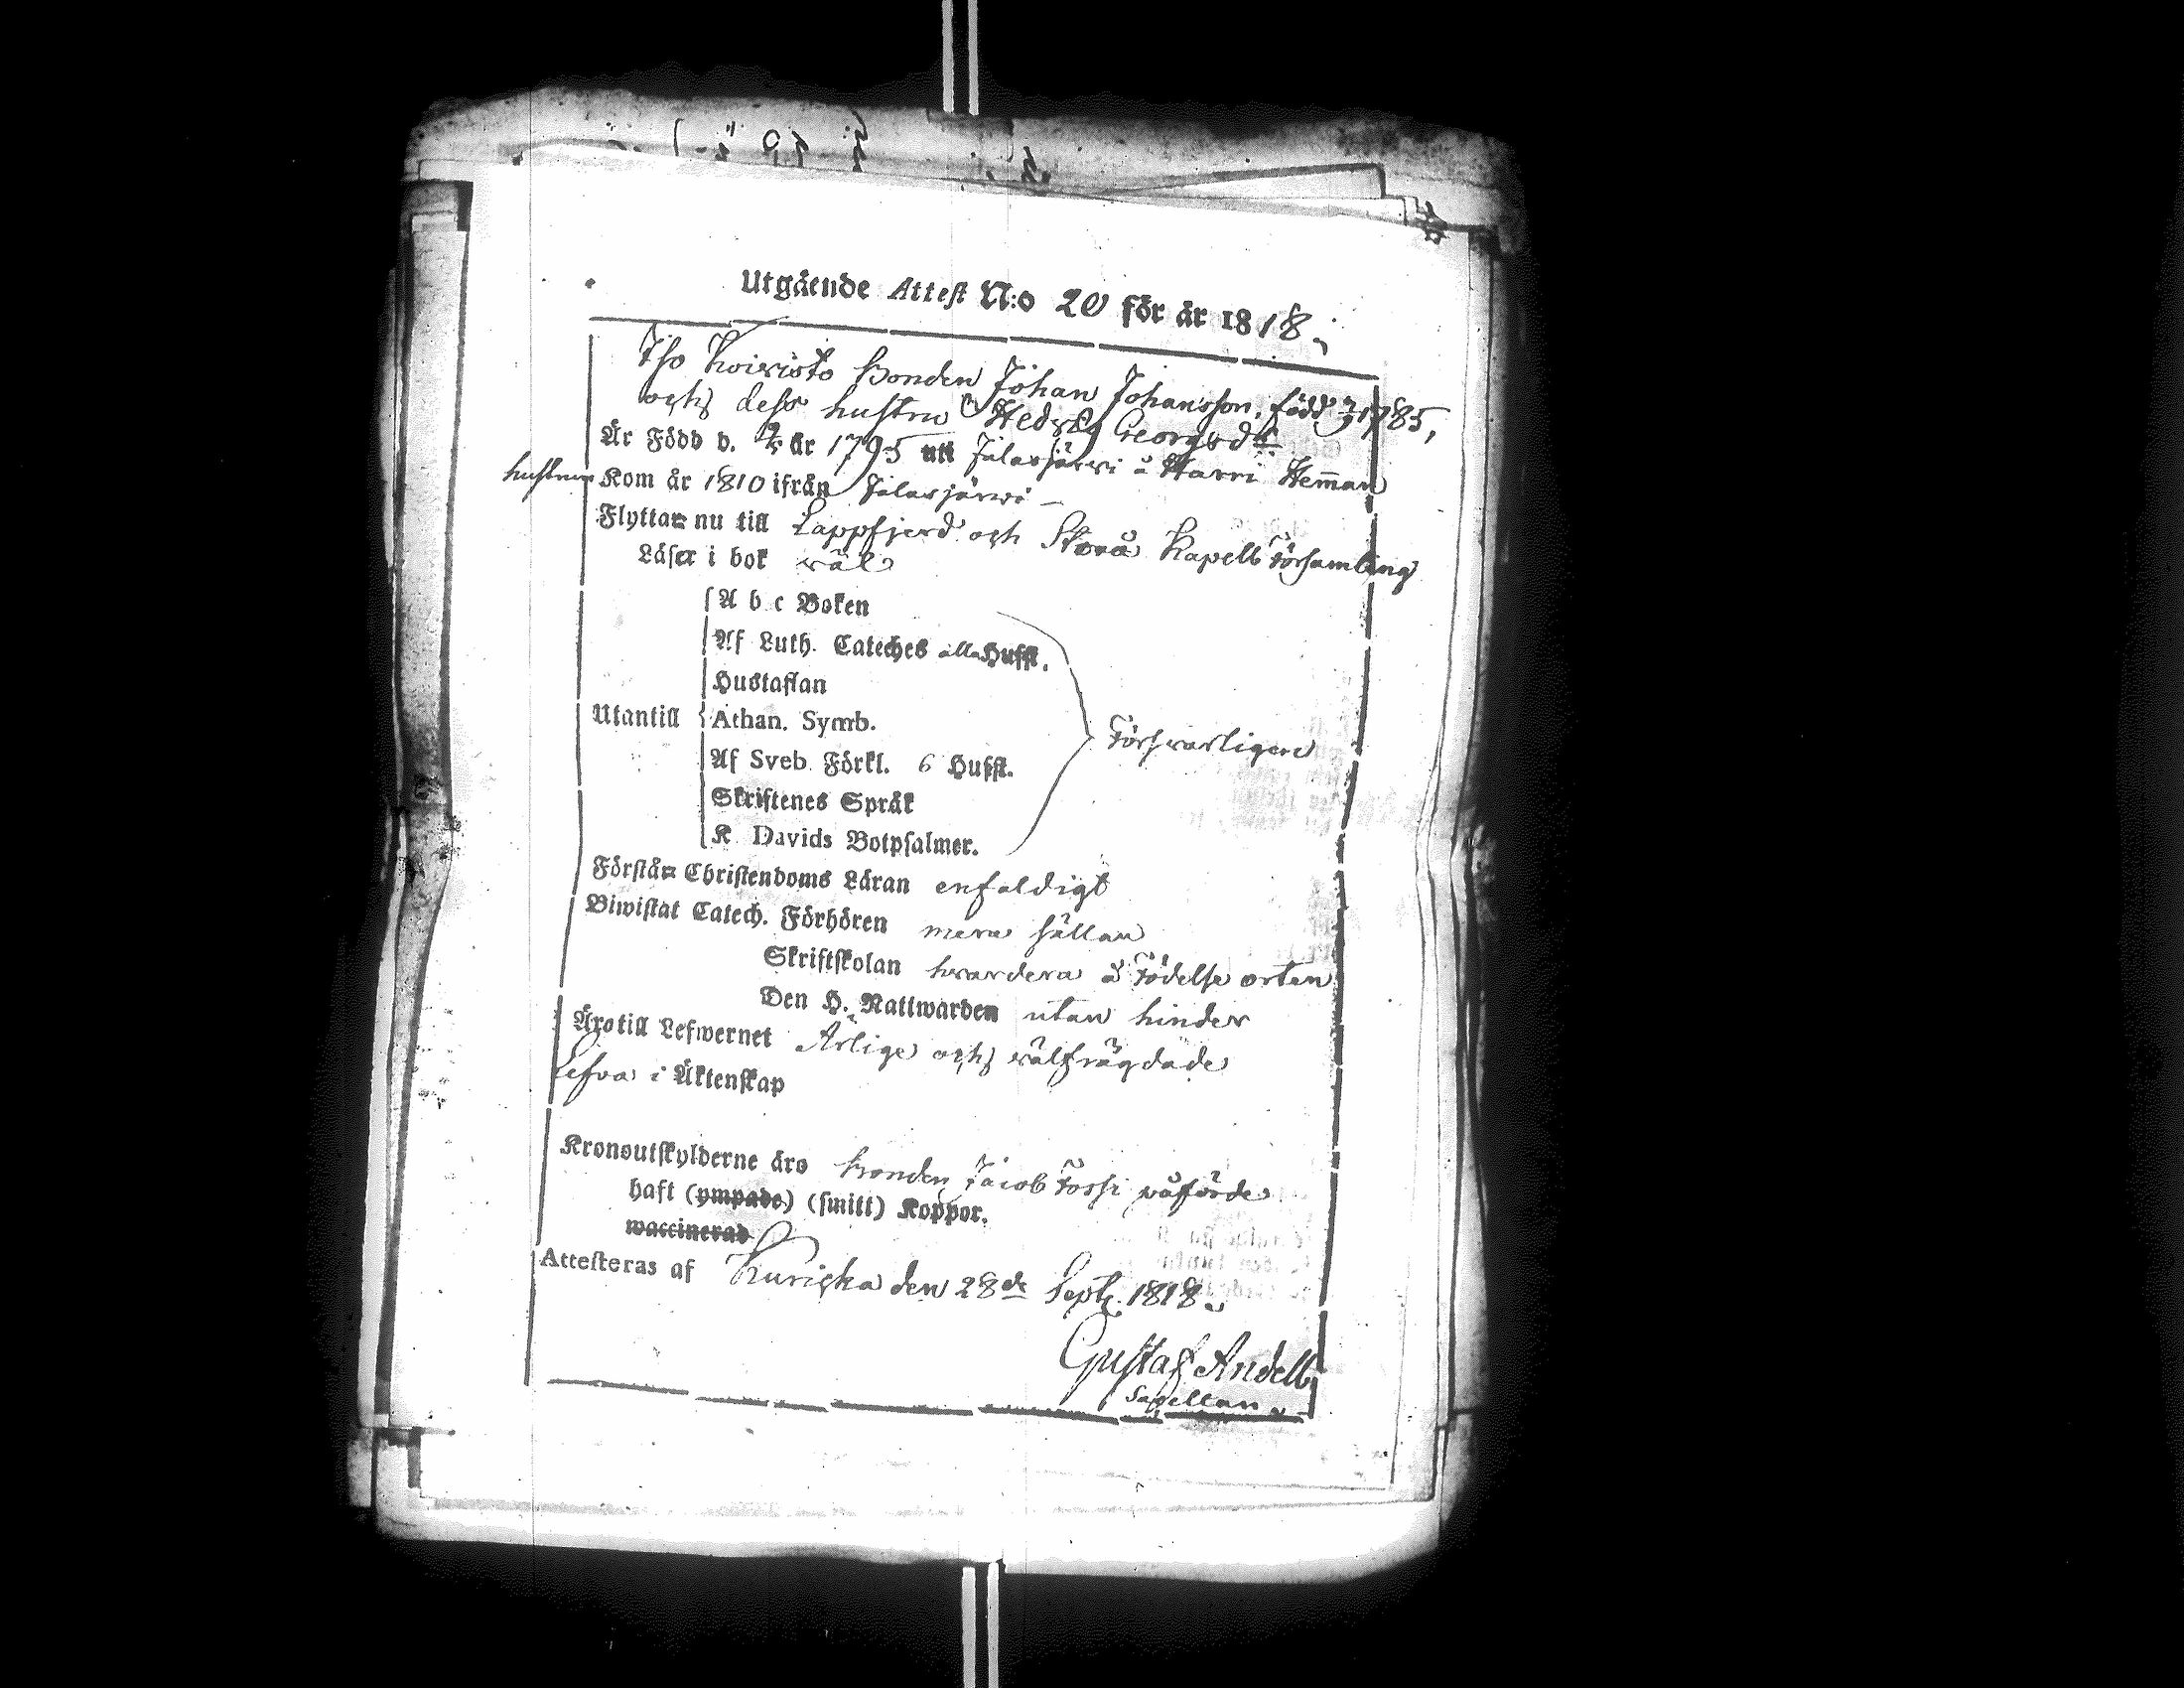 Utgående Attest N:o 20 för år 1818.
Iso Koivisto Bonden Johan Johansson, född 1785,
och dess hustru Hedvig Georgsdr
Är Född d. år 1795 uti Jalasjärvi å Harri Hem̄an
hustrun Kom år 1810 ifrån Jalasjärvi –
Flyttar nu till Lappfjerd och Storå Kapells Församling
Läser i bok väl
A b c Boken
Af Luth. Cateches alla Hufst.
Hustaflan
Utantill Athan. Symb.
Försvarligen
Af Sveb. Förkl. 6 Hufst.
Skriftenes Språk
K. Davids Botpsalmer.
Förstår Christendoms Läran enfaldigt
Biwistat Catech. Förhören mera sällan
Skriftskolan hvardera å Födelse orten
Den H. Nattwarden utan hinder
Äro till Lefwernet Ärlige och välfrägdade
Lefva i Äktenskap
Kronoutskylderne äro Bonden Jacob Fossi påförde
haft (ympade) (smitt) Koppor.
waccinerad
Attesteras af Kurikka den 28de Sept. 1818.
Gustaf Andell
Capellan.